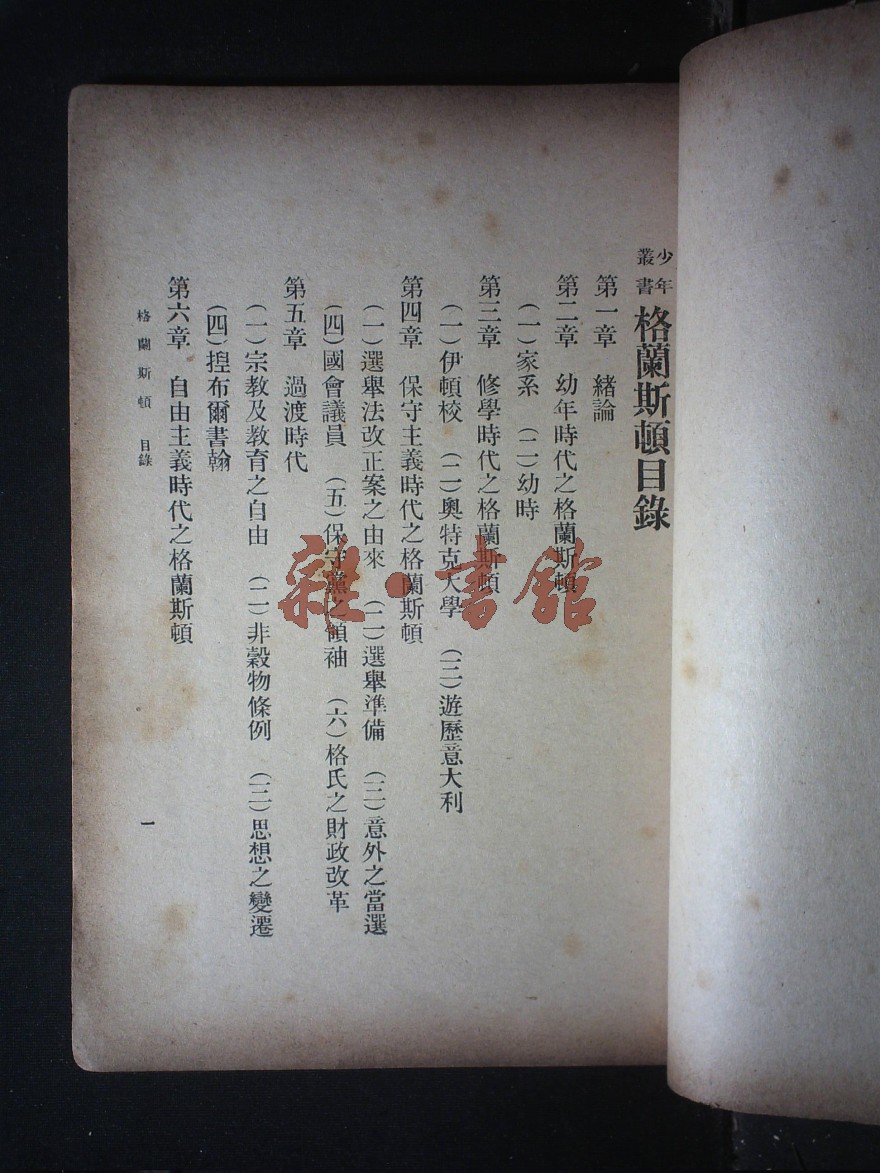 少年叢書 格蘭斯頓目錄
第一章 緒論
第二章 幼年時代之格蘭斯頓
(一)家系 (二)幼時
第三章 修學時代之格蘭斯頓
(一)伊頓校 (二)奧特克大學 (三)遊歷意大利
第四章 保守主義時代之格蘭斯頓
(一)選舉法改正案之由來 (二)選舉準備 (三)意外之當選
(四)國會議員 (五)保守黨之領袖 (六)格氏之財政改革
第五章 過渡時代
(一)宗教及教育之自由 (二)非穀物條例 (三)思想之變遷
(四)揑布爾書翰
第六章 自由主義時代之格蘭斯頓
格蘭斯頓 目錄
一
雜·書館